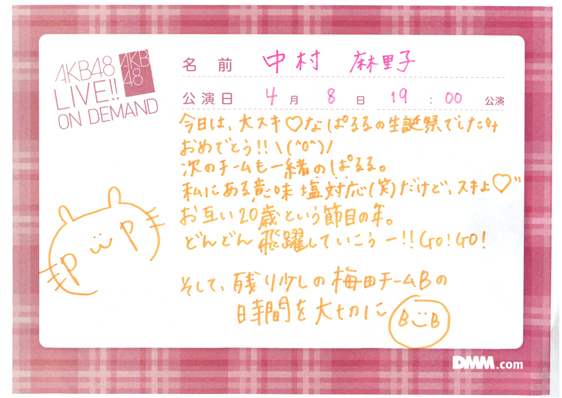 AKB48
LIVE!!
ON DEMAND
AKB
48
名前 中村 麻里子
公演日 4月 8日 19:00 公演
今日は、大スキ♡なぱるるの生誕祭でした
おめでとう!!\(^o^)/
次のチームも一緒のぱるる。
私にある意味塩対応(笑)だけど、スキよ♡
お互い20歳という節目の年。
どんどん飛躍していこうー!!GO!GO!
そして、残り少しの梅田チームBの
時間を大切に
B B
DMM.com